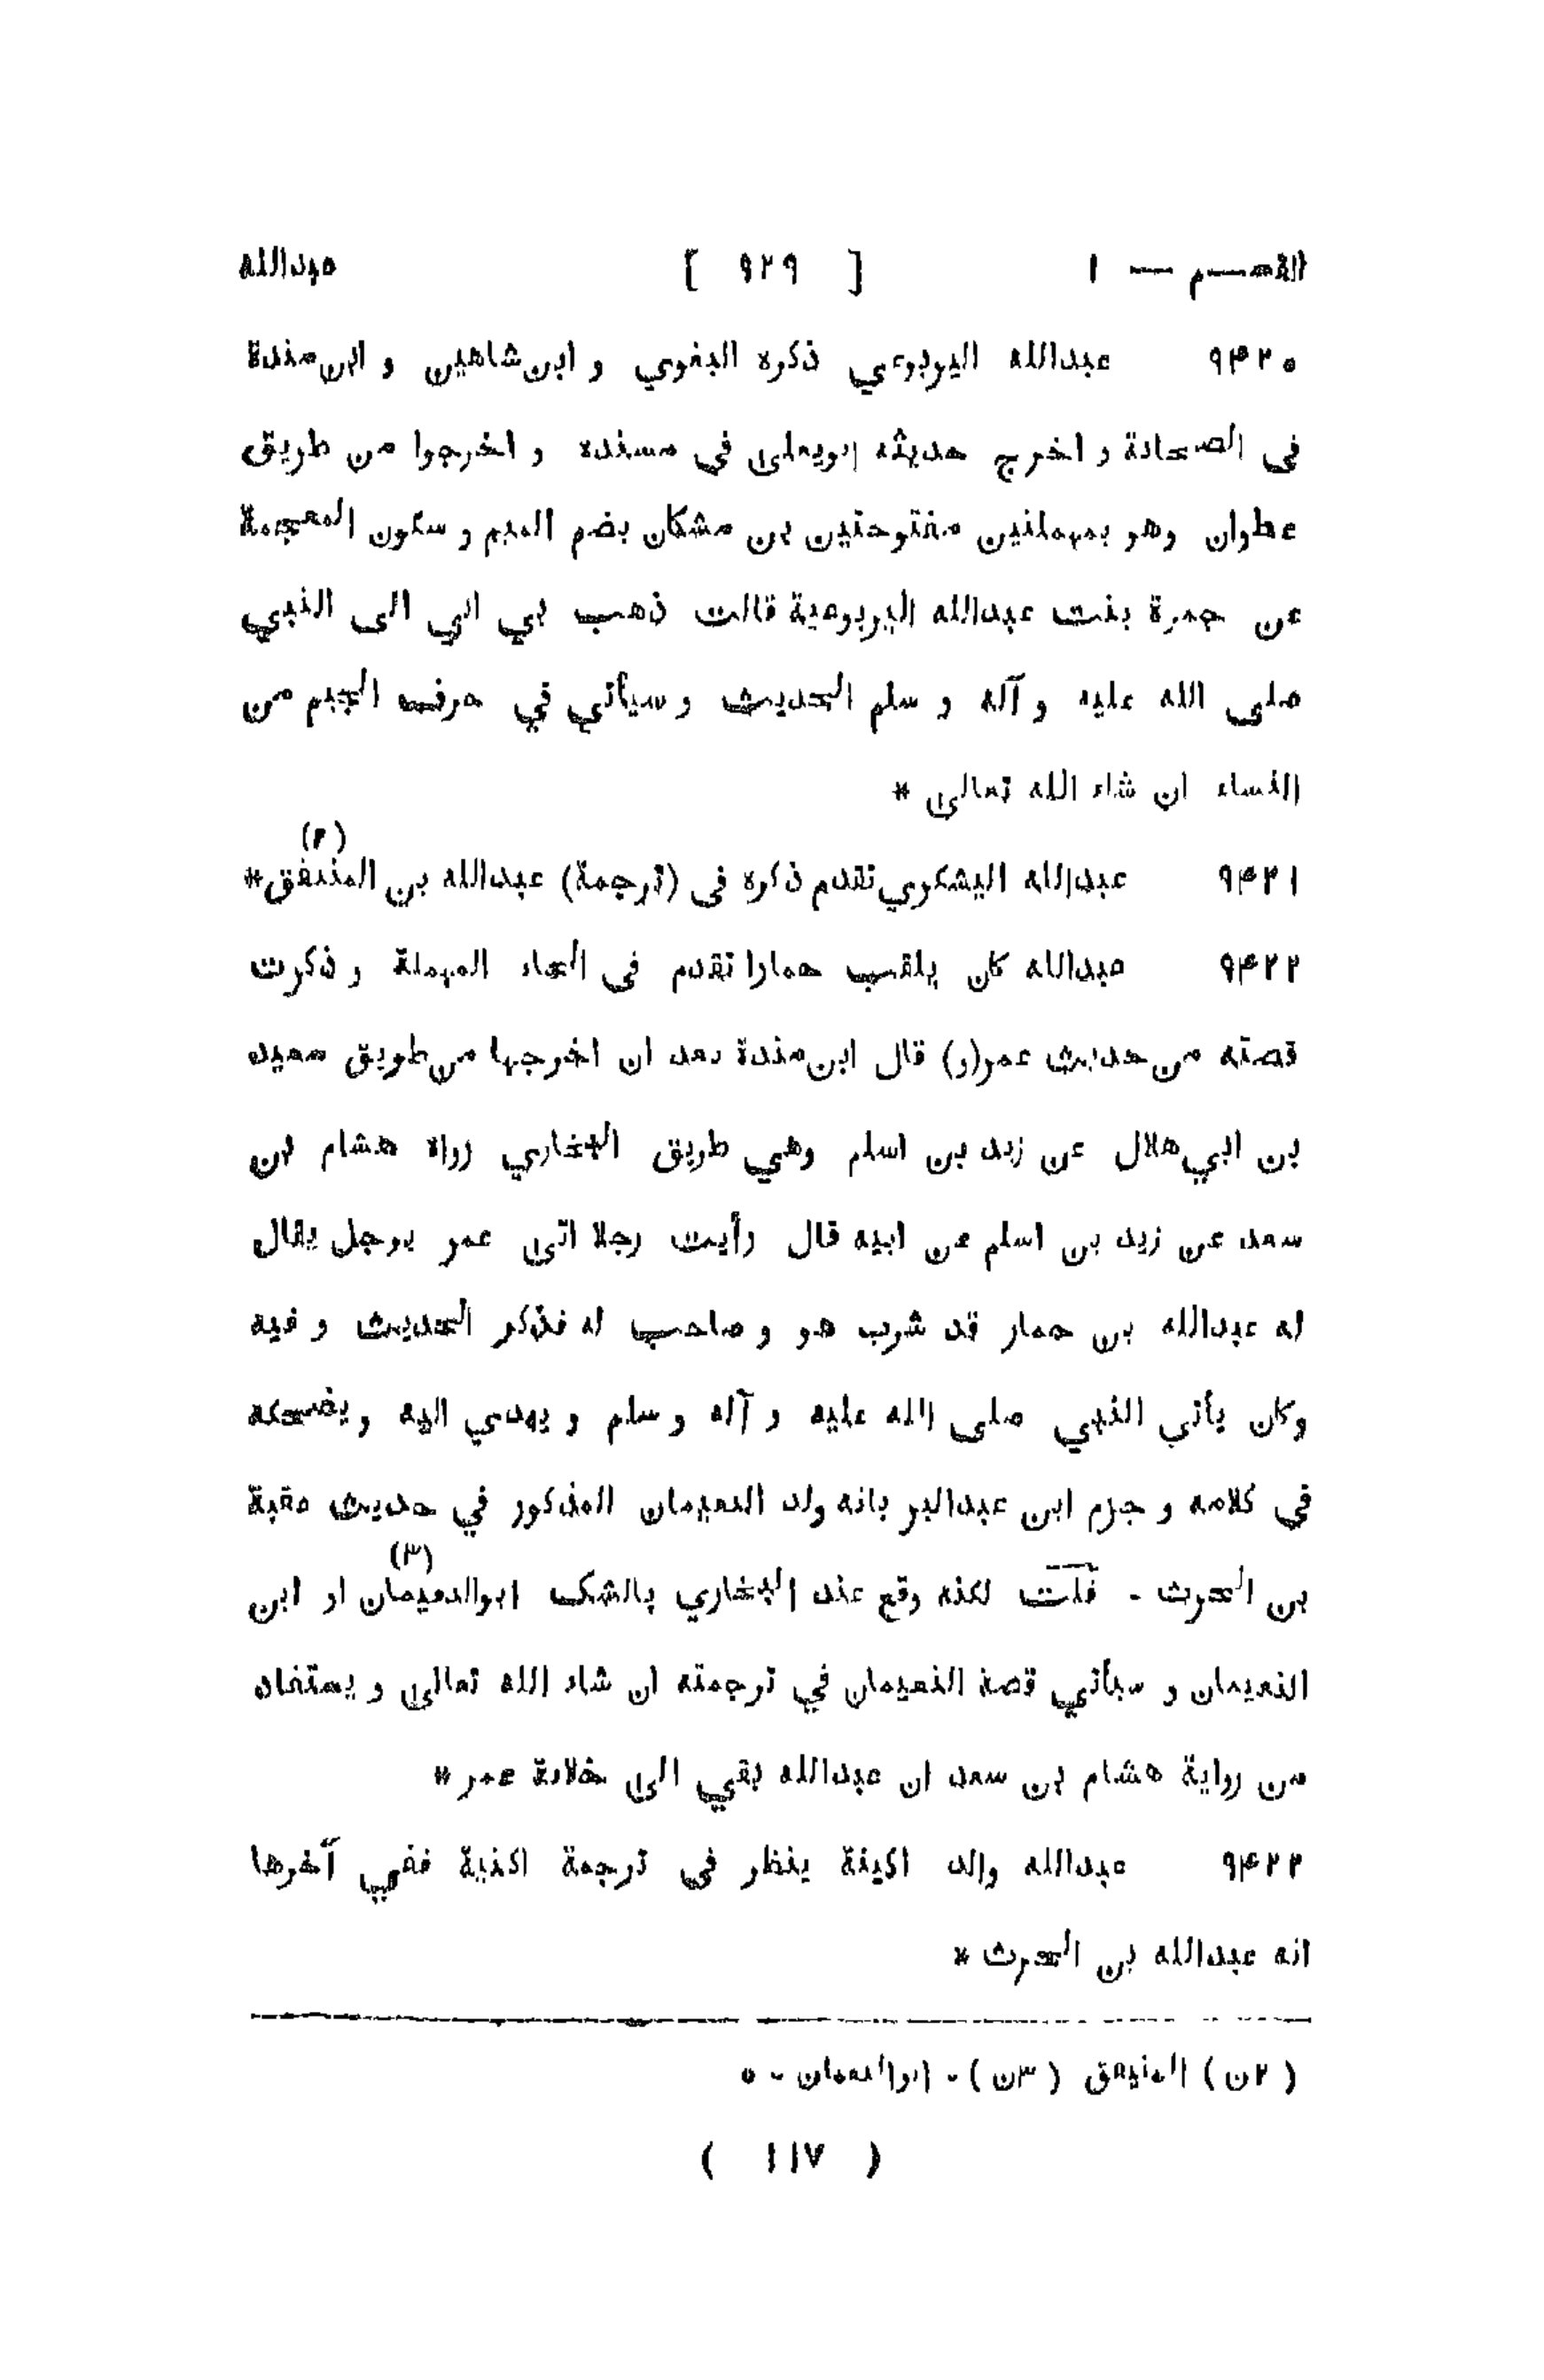 القسم — ١ [ ٩٢٩ ] عبدالله
٩٤٢٠ عبدالله اليربوعي ذكره البغوي و ابن شاهين و ابن مندة
فى الصحابة و اخرج حديثه ابويعلى في مسنده و اخرجوا من طريق
عطوان وهو بمهملتين مفتوحتين بن مشكان بضم الميم و سكون المعجمة
عن جمرة بنت عبدالله اليربوعية قالت ذهب بي ابي الى النبي
صلى الله عليه و آله و سلم الحديث و سيأتي في حرف الجيم من
النساء ان شاء الله تعالى *
٩٤٢١ عبدالله اليشكري تقدم ذكره فى (ترجمة) عبدالله بن المنتفق (٢) *
٩٤٢٢ عبدالله كان يلقب حمارا تقدم فى الحاء المهملة و ذكرت
قصته من حديث عمر(و) قال ابن مندة بعد ان اخرجها من طريق سعيد
بن ابي هلال عن زيد بن اسلم وهي طريق البخاري رواه هشام بن
سعد عن زيد بن اسلم عن ابيه قال رأيت رجلا اتى عمر برجل يقال
له عبدالله بن حمار قد شرب هو و صاحب له فذكر الحديث و فيه
وكان يأتي النبي صلى الله عليه و آله و سلم و يهدي اليه و يضحكه
في كلامه و جزم ابن عبدالبر بانه ولد النعيمان المذكور في حديث عقبة
بن الحرث - قلت لكنه وقع عند البخاري بالشك ابوالنعيمان (٣) او ابن
النعيمان و سيأتي قصة النعيمان في ترجمته ان شاء الله تعالى و يستفاد
من رواية هشام بن سعد ان عبدالله بقي الى خلافة عمر *
٩٤٢٣ عبدالله والد اكينة ينظر فى ترجمة اكنية ففي آخرها
انه عبدالله بن الحرث *
( ٢ن ) المنيفق ( ٣ن ) - ابوالنعمان - ٥
( ١١٧ )